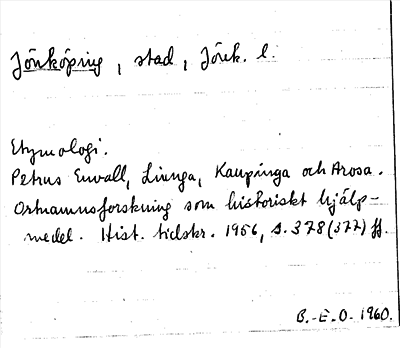 Jönköping, stad, Jönk. l.
Etymologi.
Petrus Envall, Liunga, Kaupinga och Arosa.
Ortnamnsforskning som historiskt hjälp-
medel. Hist. tidskr. 1956, s. 378 (372) ff.
B.-E.O. 1960.